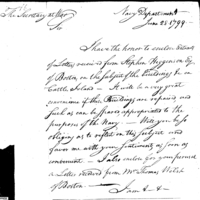 The Secretary at War
Navy Department
June 28 1799
I have the honor to enclose extracts
of Letters received from Stephen Higginson Esq.
of Boston, on the subject of the Buildings on
Castle Island - It will be a very great
convenience if these Buildings are repaired and
such as can be spared appropriated to the
purposes of the Navy. - Will you be so
obliging as to reflect on this subject and
favor me with your sentiments as soon as
convenient - I also enclose for your perusal
a Letter received from Mr Thomas Welsh
of Boston -
I am &c